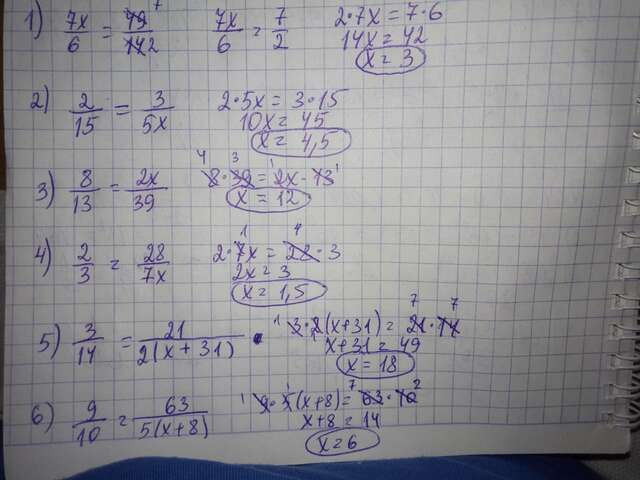 1) 7x/6 = 49/14 7 2 7x/6 = 7/2 2·7x = 7·6
14x = 42
x = 3
2) 2/15 = 3/5x 2·5x = 3·15
10x = 45
x = 4,5
3) 8/13 = 2x/39 4 3 1 1 8·39 = 2x·13
x = 12
4) 2/3 = 28/7x 1 4 2·7x = 28·3
2x = 3
x = 1,5
5) 3/14 = 21/2(x+31) 1 1 7 7 3·2(x+31) = 21·14
x+31 = 49
x = 18
6) 9/10 = 63/5(x+8) 1 1 7 2 9·5(x+8) = 63·10
x+8 = 14
x=6